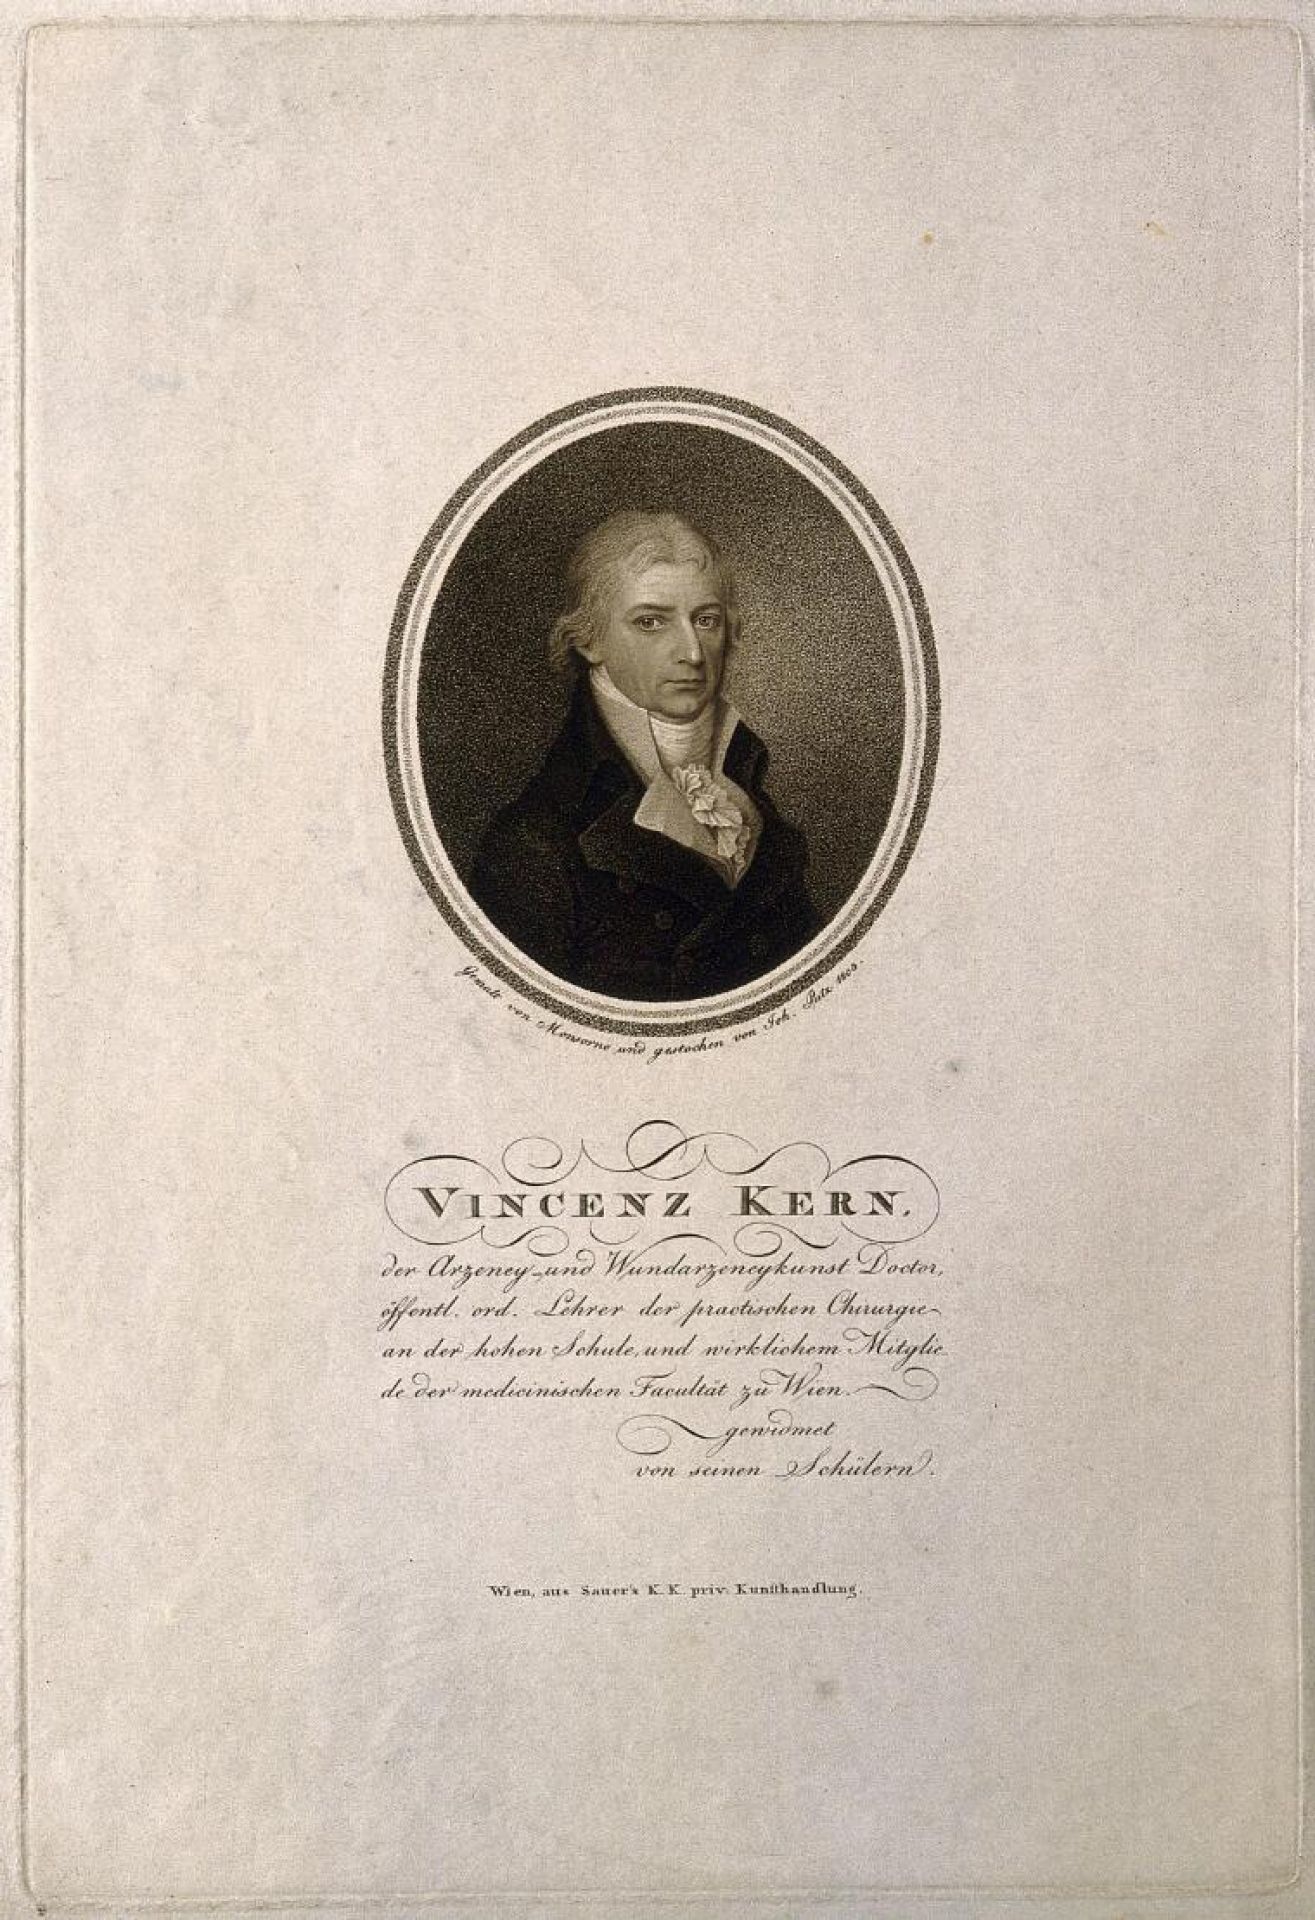 Gemalt von Monsorno und gestochen von Joh. Putz 1803.
VINCENZ KERN.
der Arzeney-und Wundarzeneykunst Doctor,
öffentl. ord. Lehrer der practischen Chirurgie
an der hohen Schule, und wirklichem Mitglie
de der medicinischen Facultät zu Wien.
gewidmet
von seinen Schülern.
Wien, aus Sauer's K. K. priv. Kunſthandlung.